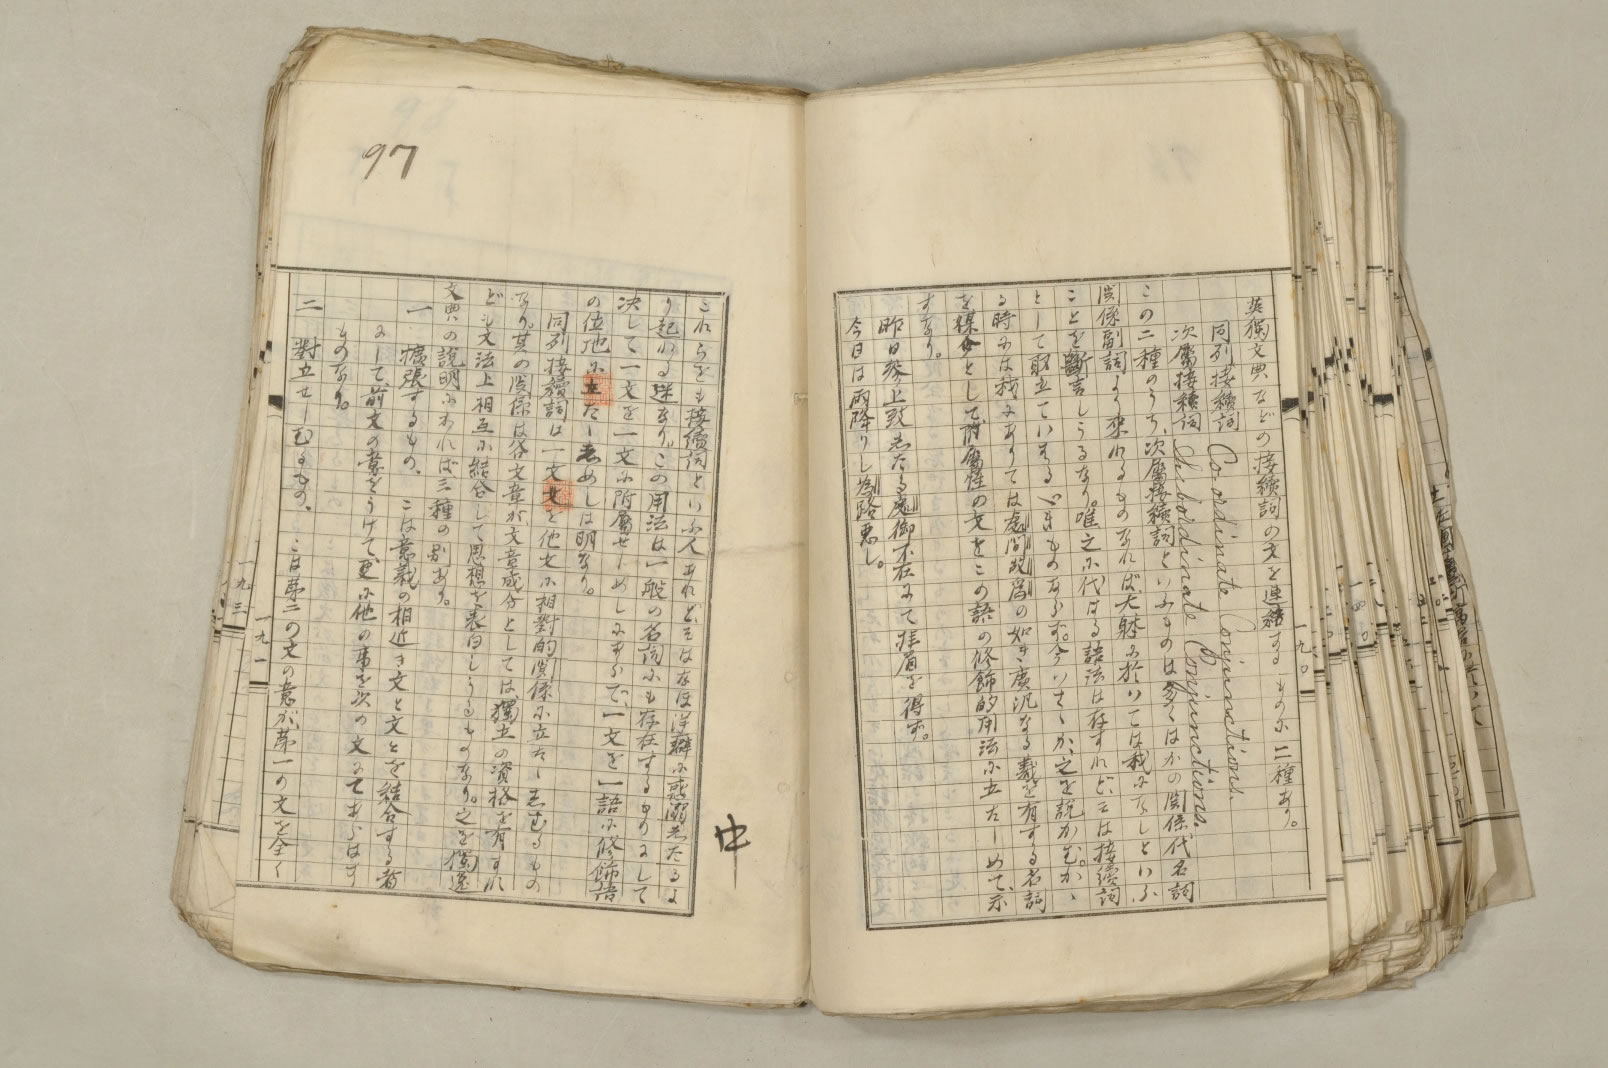 英獨文典などの接續詞の文を連結するものに二種あり。
同列接續詞 Co-ordinate Conjunctions.
次屬接續詞 Subordinate Conjunctions.
この二種のうち、次屬接續詞といふものは多くはかの関係代名詞
関係副詞より来れるものなれば、大躰に於いては我になしといふ
ことを斷言しうるなり。唯之に代はる語法は存すれど、そは接續詞
として取立ていふるべきものならず。今いさゝか之を説かむか、
る時には我にありては處、間、故、為の如き廣汎なる義を有する名詞
を媒介として附屬性の文をこの語の修飾的用法に立たしめて、示
すなり。
昨日参上致したる處御不在にて拝眉を得ず。
今日は雨降りし為路悪し。
一九〇
97
これらをも接續詞といふ人あれど、そはなほ洋癖に惑溺したるよ
り起れる迷なり。この用法は一般の名詞にも存在するものにして
決して一文を一文に附屬せしめしにあらで、一文を一語に修飾語
の位地に立たしめしは明なり。
同列接續詞は一文を他文に相對的関係に立たしむるもの
なり。其の関係は各文章が文章成分としては、獨立の資格を有すれ
ども文法上相互に結合して思想を表白しうるものなり。之を獨逸
文典の説明によれば三種の別あり。
一 擴張するもの、 こは意義の相近き文と文とを結合する者
にして、前文の意をうけて更に他の事を次の文にてあらはす
ものなり。
二 對立せしむるもの、 こは第二の文の意が、第一の文を全く
一九一
一九三
中